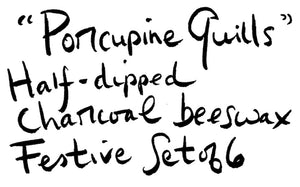 "Porcupine Quills"
Half-dipped
Charcoal beeswax
Festive Set of 6